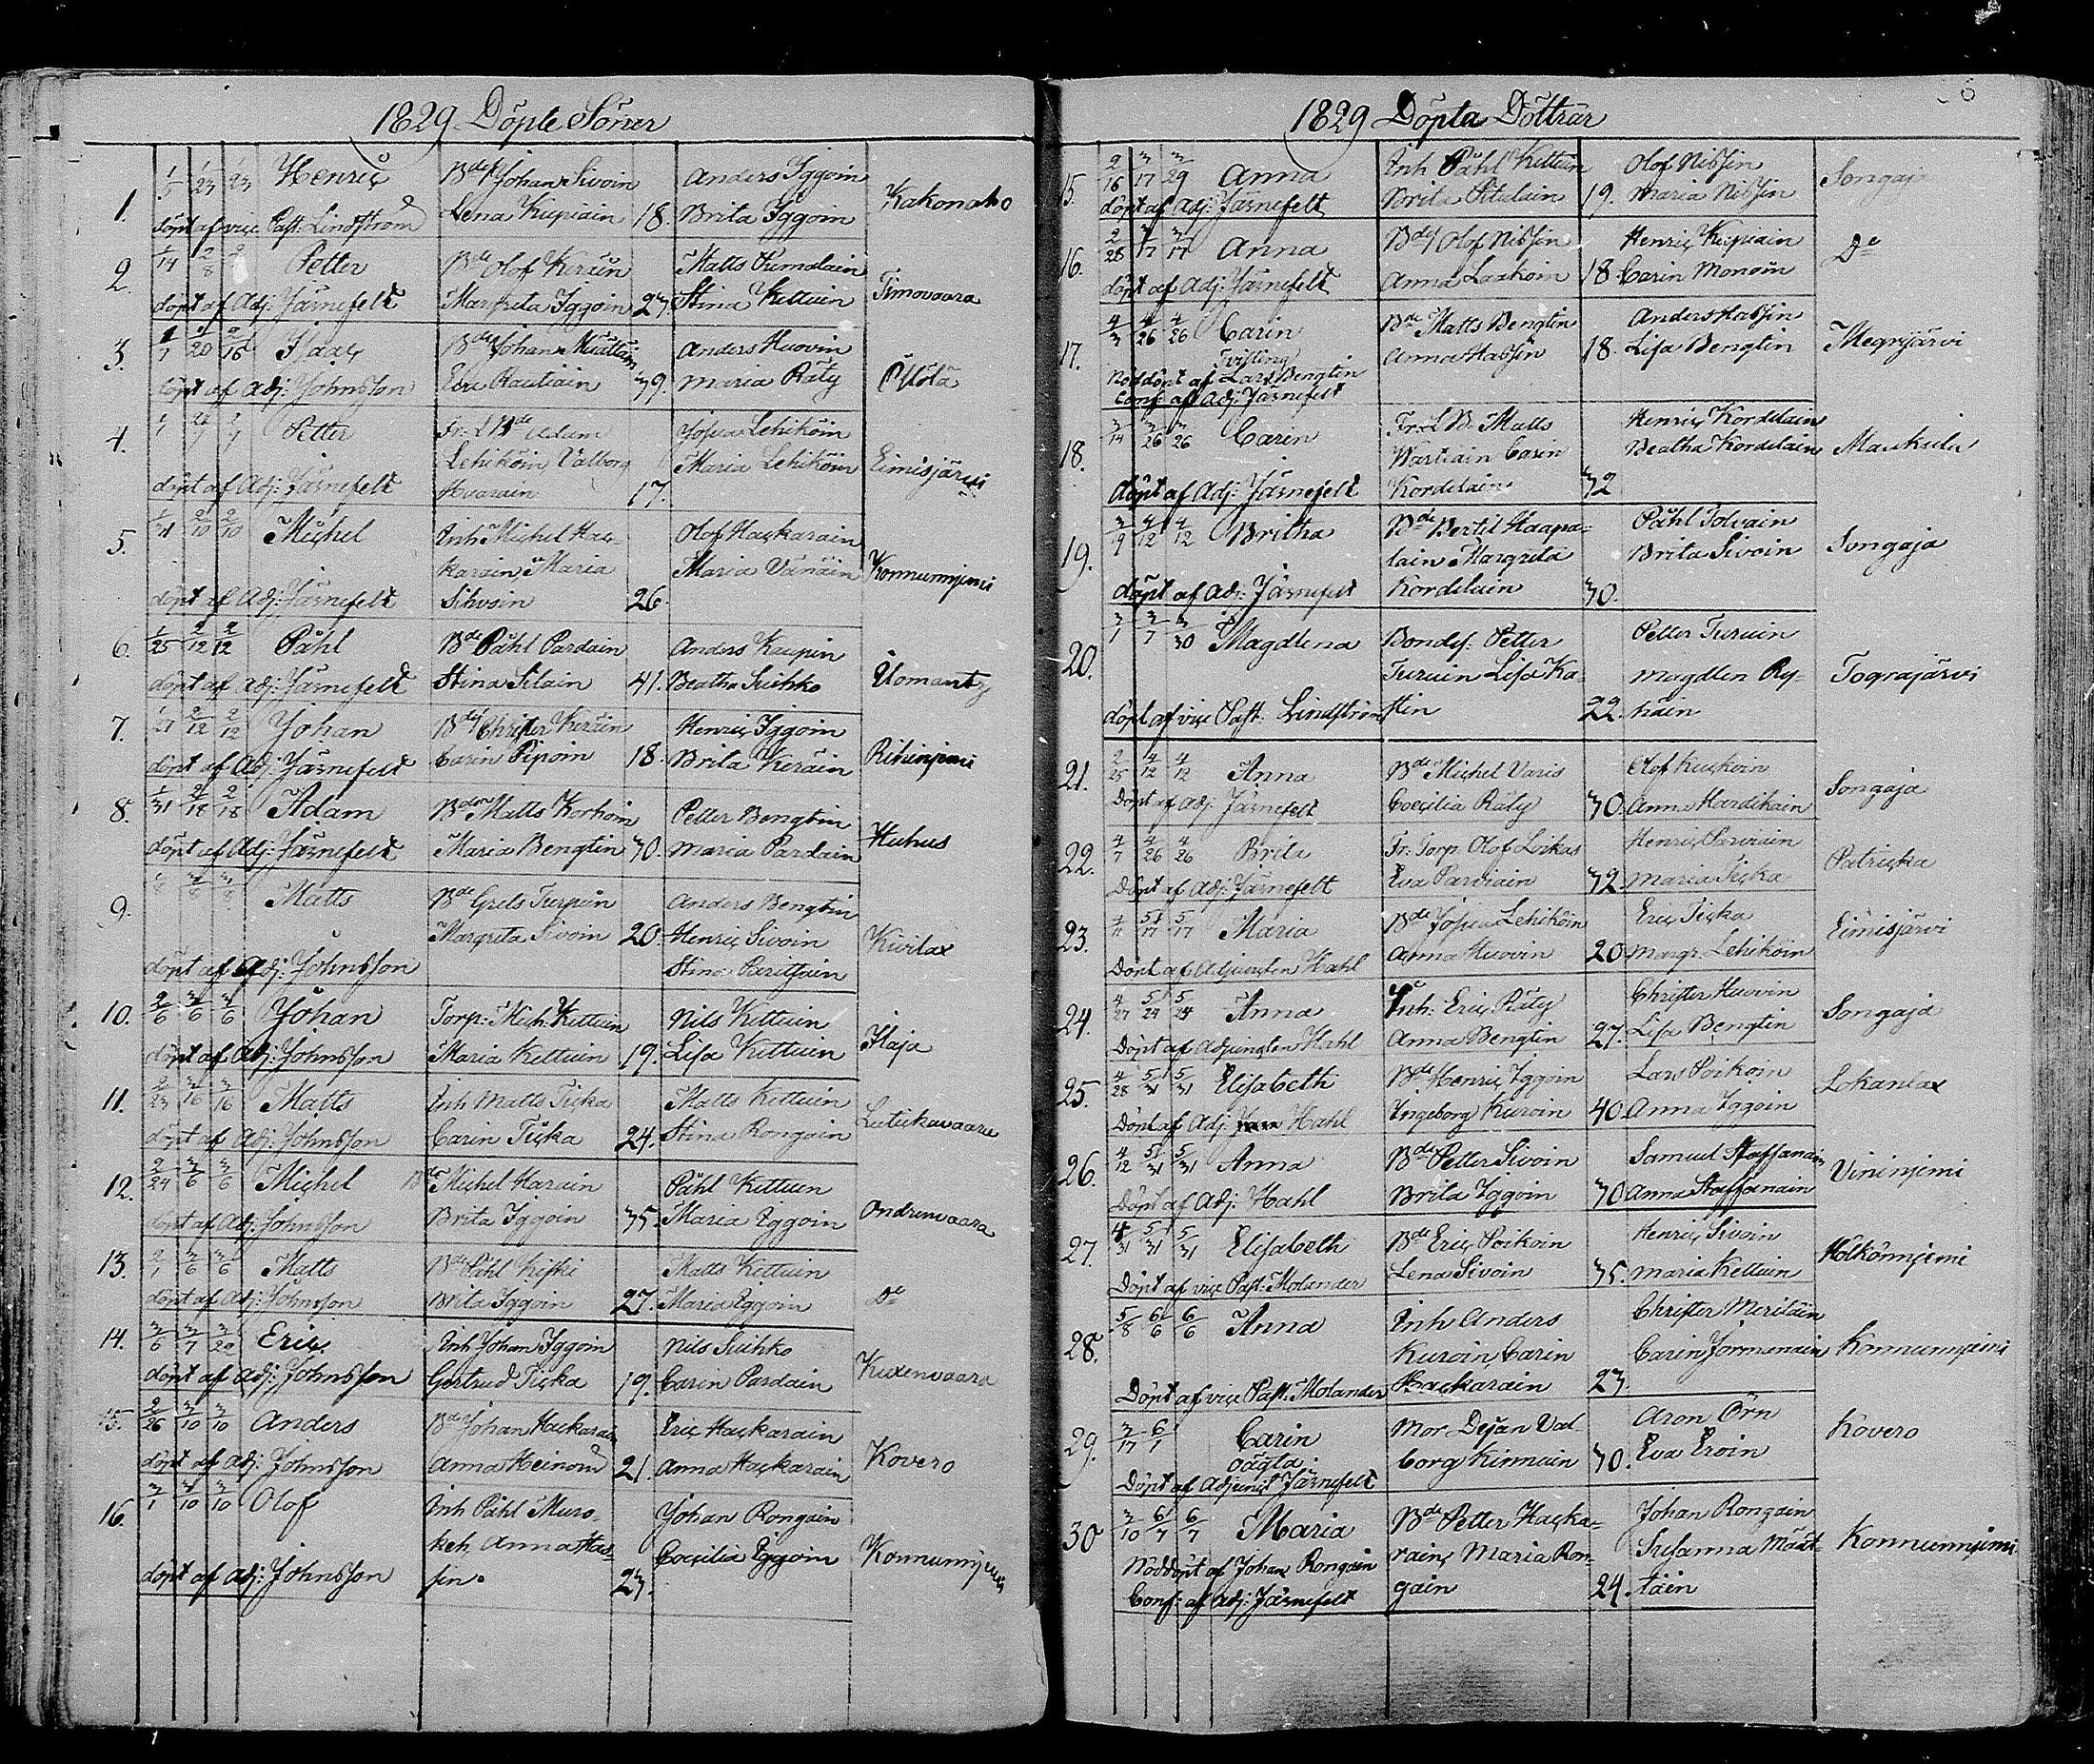 1829 Döpte Söner
1. 1/5 1/23 1/23 Henric Bdes Johan Sivoin Anders Iggoin Kakonaho
döpt af vice Past: Lindström Lena Kiepiain 18. Brita Iggoin
2. 1/14 2/8 Petter Bde Olof Keräin Matts Purmolain Timovaara
döpt af Adj: Järnefelt Margreta Iggoin 23. Stina Kettuin
3. 1/1 1/20 2/16 Isaac Bdes Johan Muättäin Anders Huovin
döpt af Adj: Johnsson Rautiain 39. Maria Räty
4. Petter Fr: L Bde Adam Josua Lehikoin Eimisjärvi
Lehikoin Valborg Maria Lehikoin
döpt af Adj: Järnefelt Huarain 17.
5. 1/31 2/10 2/10 Michel Inh Michel Hac- Olof Hackarain Konnunnjemi
karain, Maria Maria Vänäin
döpt af Adj: Järnefelt Sihvoin 26.
6. 1/25 2/12 2/12 Påhl Bde Påhl Pardain Anders Kaupin Ilomants
döpt af Adj: Järnefelt Stina Silain 41. Beatha Suihko
7. 1/27 2/12 2/12 Johan Bdes Christer Keräin Henric Iggoin Rihinjemi
döpt af Adj: Järnefelt Carin Piipoin 18. Brita Keräin
8. 1/31 2/18 2/18 Adam Bden Matts Korhoin Petter Bengtin Huhus
döpt af Adj: Järnefelt Maria Bengtin 30. Maria Pardain
9. 1/8 3/8 3/8 Matts Bde Grels Turpuin Anders Bengtin Kivilax
Margreta Sivoin 20. Henric Sivoin
döpt af Adj: Johnsson Stina
10. 2/6 3/6 3/6 Johan Torp: Mich: Kettuin Nils Kettuin Ilaja
döpt af Adj: Johnsson Maria Kettuin 19. Lisa Kettuin
11. 2/23 3/16 3/16 Matts Inh Matts Ticka Matts Kettuin Lutickavaara
döpt af Adj: Johnsson Carin Ticka 24. Stina Rongain
12. 2/24 3/6 3/6 Michel Bde Michel Harain Påhl Kettuin Ondrenvaara
döpt af Adj: Johnsson Brita Iggoin 35. Maria Eggoin
13. 2/1 3/6 3/6 Matts Bde Påhl Kiiski Matts Kettuin De
döpt af Adj: Johnsson Brita Iggoin 27. Maria Eggoin
14. 3/6 3/7 3/29 Eric Inh Johan Iggoin Nils Suihko Kuxenvaara
döpt af Adj: Johnsson Gertrud Ticka 19. Carin Pardain
15. 2/26 3/10 3/10 Anders Bden Johan Hackarain Eric Hackarain Kovero
döpt af Adj: Johnsson Anna Heinoin 21. Anna Hackarain
16. 3/1 3/10 3/10 Olof Inh Påhl Muro- Johan Rongain Konnunnjemi
keh, Anna Has- Coecilia Eggoin
döpt af Adj: Johnsson sin. 23.
1829 Döpta Döttrar
15. 2/16 3/17 3/29 Anna Inh Påhl Kettuin Olof Nissin Songaja
döpt af Adj: Järnefelt Brita Pitulain 19. Maria Nissin
16. 2/28 3/17 3/17 Anna Bdes Olof Nissin Henric Kiepiain De
döpt af Adj: Järnefelt Anna Laakoin 18 Carin Monoin
17. 4/3 4/26 4/26 Carin Bde Matts Bengtin Anders Hassin Megrijärvi
Tvilling Anna Hassin 18. Lisa Bengtin
Nöddöpt af Lars Bengtin
Conf: af Adj: Järnefelt
18. 3/14 3/26 3/26 Carin Fr: L Bde Matts Henric Kordelain Maukula
Wartiain Carin Beatha Kordelain
döpt af Adj: Järnefelt Kordelain 32
19. 3/9 4/12 4/12 Britha Bde Bertil Haapa- Påhl Tolvain Songaja
lain Margreta Brita Sivoin
döpt af Adj: Järnefelt Kordelain 30.
20. 3/1 3/7 3/30 Magdlena Bondes: Petter Petter Turuin Tograjärvi
Turuin Lisa Ka- Magdlen Ry-
döpt af vice Past: Lindström stin 22. häin
21. 2/25 4/12 4/12 Anna Bde Michel Varis Olof Kuckoin Songaja
Döpt af Adj: Järnefelt Coecilia Räty 30. Anna Hardikain
22. 4/7 4/26 4/26 Brita Fr: Torp Olof Loikas Henric Parviain Patricka
Döpt af Adj: Järnefelt Eva Parviain 32. Maria Ticka
23. 5/17 5/17 Maria Bde Josua Lehikoin Eric Ticka Eimisjärvi
Döpt af Adjuncten Hahl Anna Huovin 20. Margr. Lehikoin
24. 4/27 5/24 5/24 Anna Inh: Eric Räty Christer Huovin Songaja
Döpt af Adjuncten Hahl Anna Bengtin 27. Lisa Bengtin
25. 4/28 5/31 5/31 Elisabeth Bde Henric Iggoin Lars Poikoin Lokanlax
Döpt af Adj: Hahl Ingeborg Kuroin 40. Anna Iggoin
26. 4/12 5/31 5/31 Anna Bde Petter Sivoin Samuel Staffanain Vininjemi
Döpt af Adj: Hahl Brita Iggoin 30 Anna Staffanain
27. 4/31 5/31 5/31 Elisabeth Bde Eric Poikoin Henric Sivoin Kolkönnjemi
Döpt af vice Past: Molander Lena Sivoin 35. Maria Kettuin
28. 5/8 6/6 6/6 Anna Inh Anders Christer Meriläin Konnunnjemi
Kuroin, Carin Carin Jormanain
Döpt af vice Past: Molander Hackarain 23.
29. 3/17 6/1 Carin Mor Dejan Val- Aron Örn Kovero
oägta. borg Kinnuin 30. Eva Eroin
Döpt af Adjunct Järnefelt
30 3/10 6/7 6/7 Maria Bde Petter Hacka- Johan Rongain Konnunnjemi
Nöddöpt af Johan Rongain rain, Maria Ron- Susanna Määt-
Conf: af Adj: Järnefelt gain 24. täin